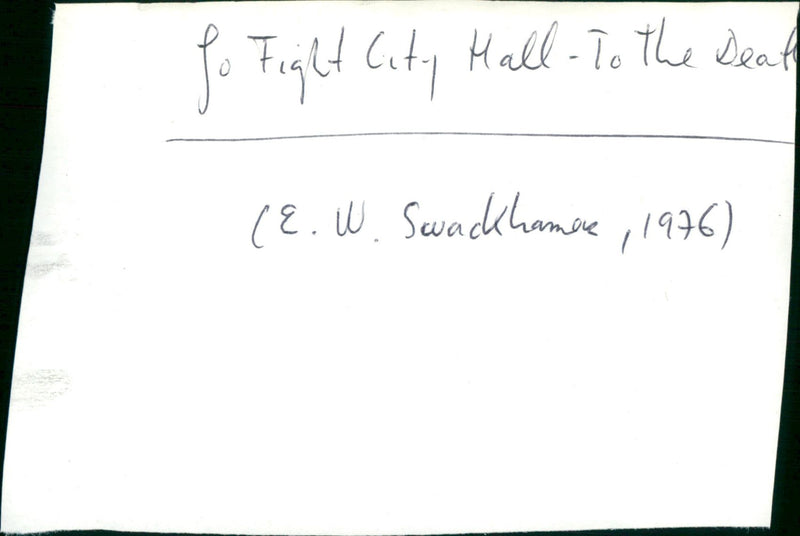 Go Fight City Hall - To The Death
(E. W. Swackhamer, 1976)